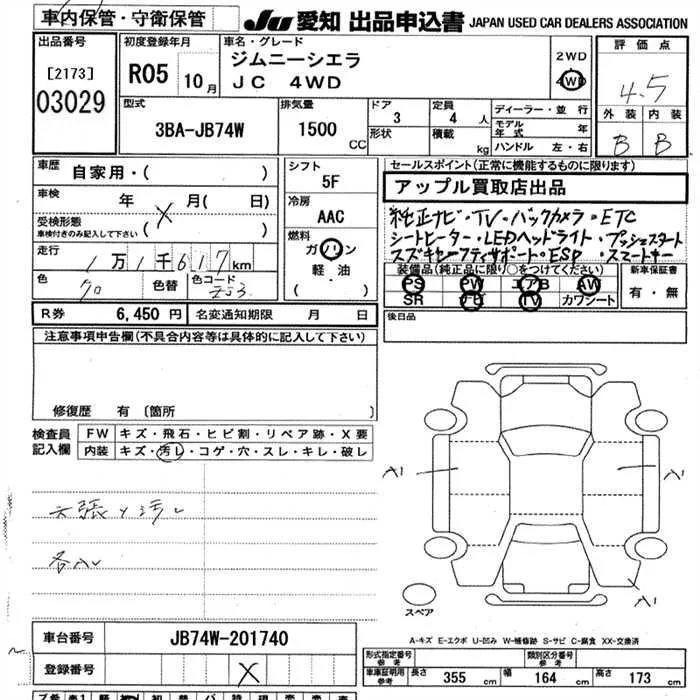 車内保管・守衛保管
JU 愛知 出品申込書 JAPAN USED CAR DEALERS ASSOCIATION
出品番号
[2173]
03029
初度登録年月
R05 10月
車名・グレード
ジムニーシエラ
JC 4WD
2WD
4WD
評価点
4.5
外装 内装
B B
型式
3BA-JB74W
排気量
1500
CC
ドア
3
形状
定員
4 人
積載
kg
ディーラー・並行
モデル年式 年
ハンドル 左・右
車歴
自家用・( )
車検
年 X 月( 日)
受検形態
車検付きのみ記入して下さい ( )
走行
1万1千617km
色
色替
色コード
ZJ3
シフト
5F
冷房
AAC
燃料
ガソリン
軽・油
( )
セールスポイント(正常に機能するものに限ります)
アップル買取店出品
純正ナビ・TV・バックカメラ・ETC
シートヒーター・LEDヘッドライト・プッシュスタート
スズキセーフティサポート・ESP・スマートキー
装備品(純正品に限り○をつけてください)
PS PW エアB AW
SR ナビ TV カワシート
新車保証書
有・無
R券 6,450円 名変通知期限 月 日
後日品
注意事項申告欄(不具合内容等は具体的に記入して下さい)
修復歴 有 〔箇所 〕
検査員記入欄
FW キズ・飛石・ヒビ割・リペア跡・X要
内装 キズ・汚レ・コゲ・穴・スレ・キレ・破レ
天張り汚レ
A1
A1
A1
スペア
A-キズ E-エクボ U-凹み W-補修跡 S-サビ C-腐食 XX-交換済
車台番号 JB74W-201740
登録番号 X
形式指定番号 参考
類別区分番号 参考
車庫証明用 参考 長さ 355 幅 164 高さ 173